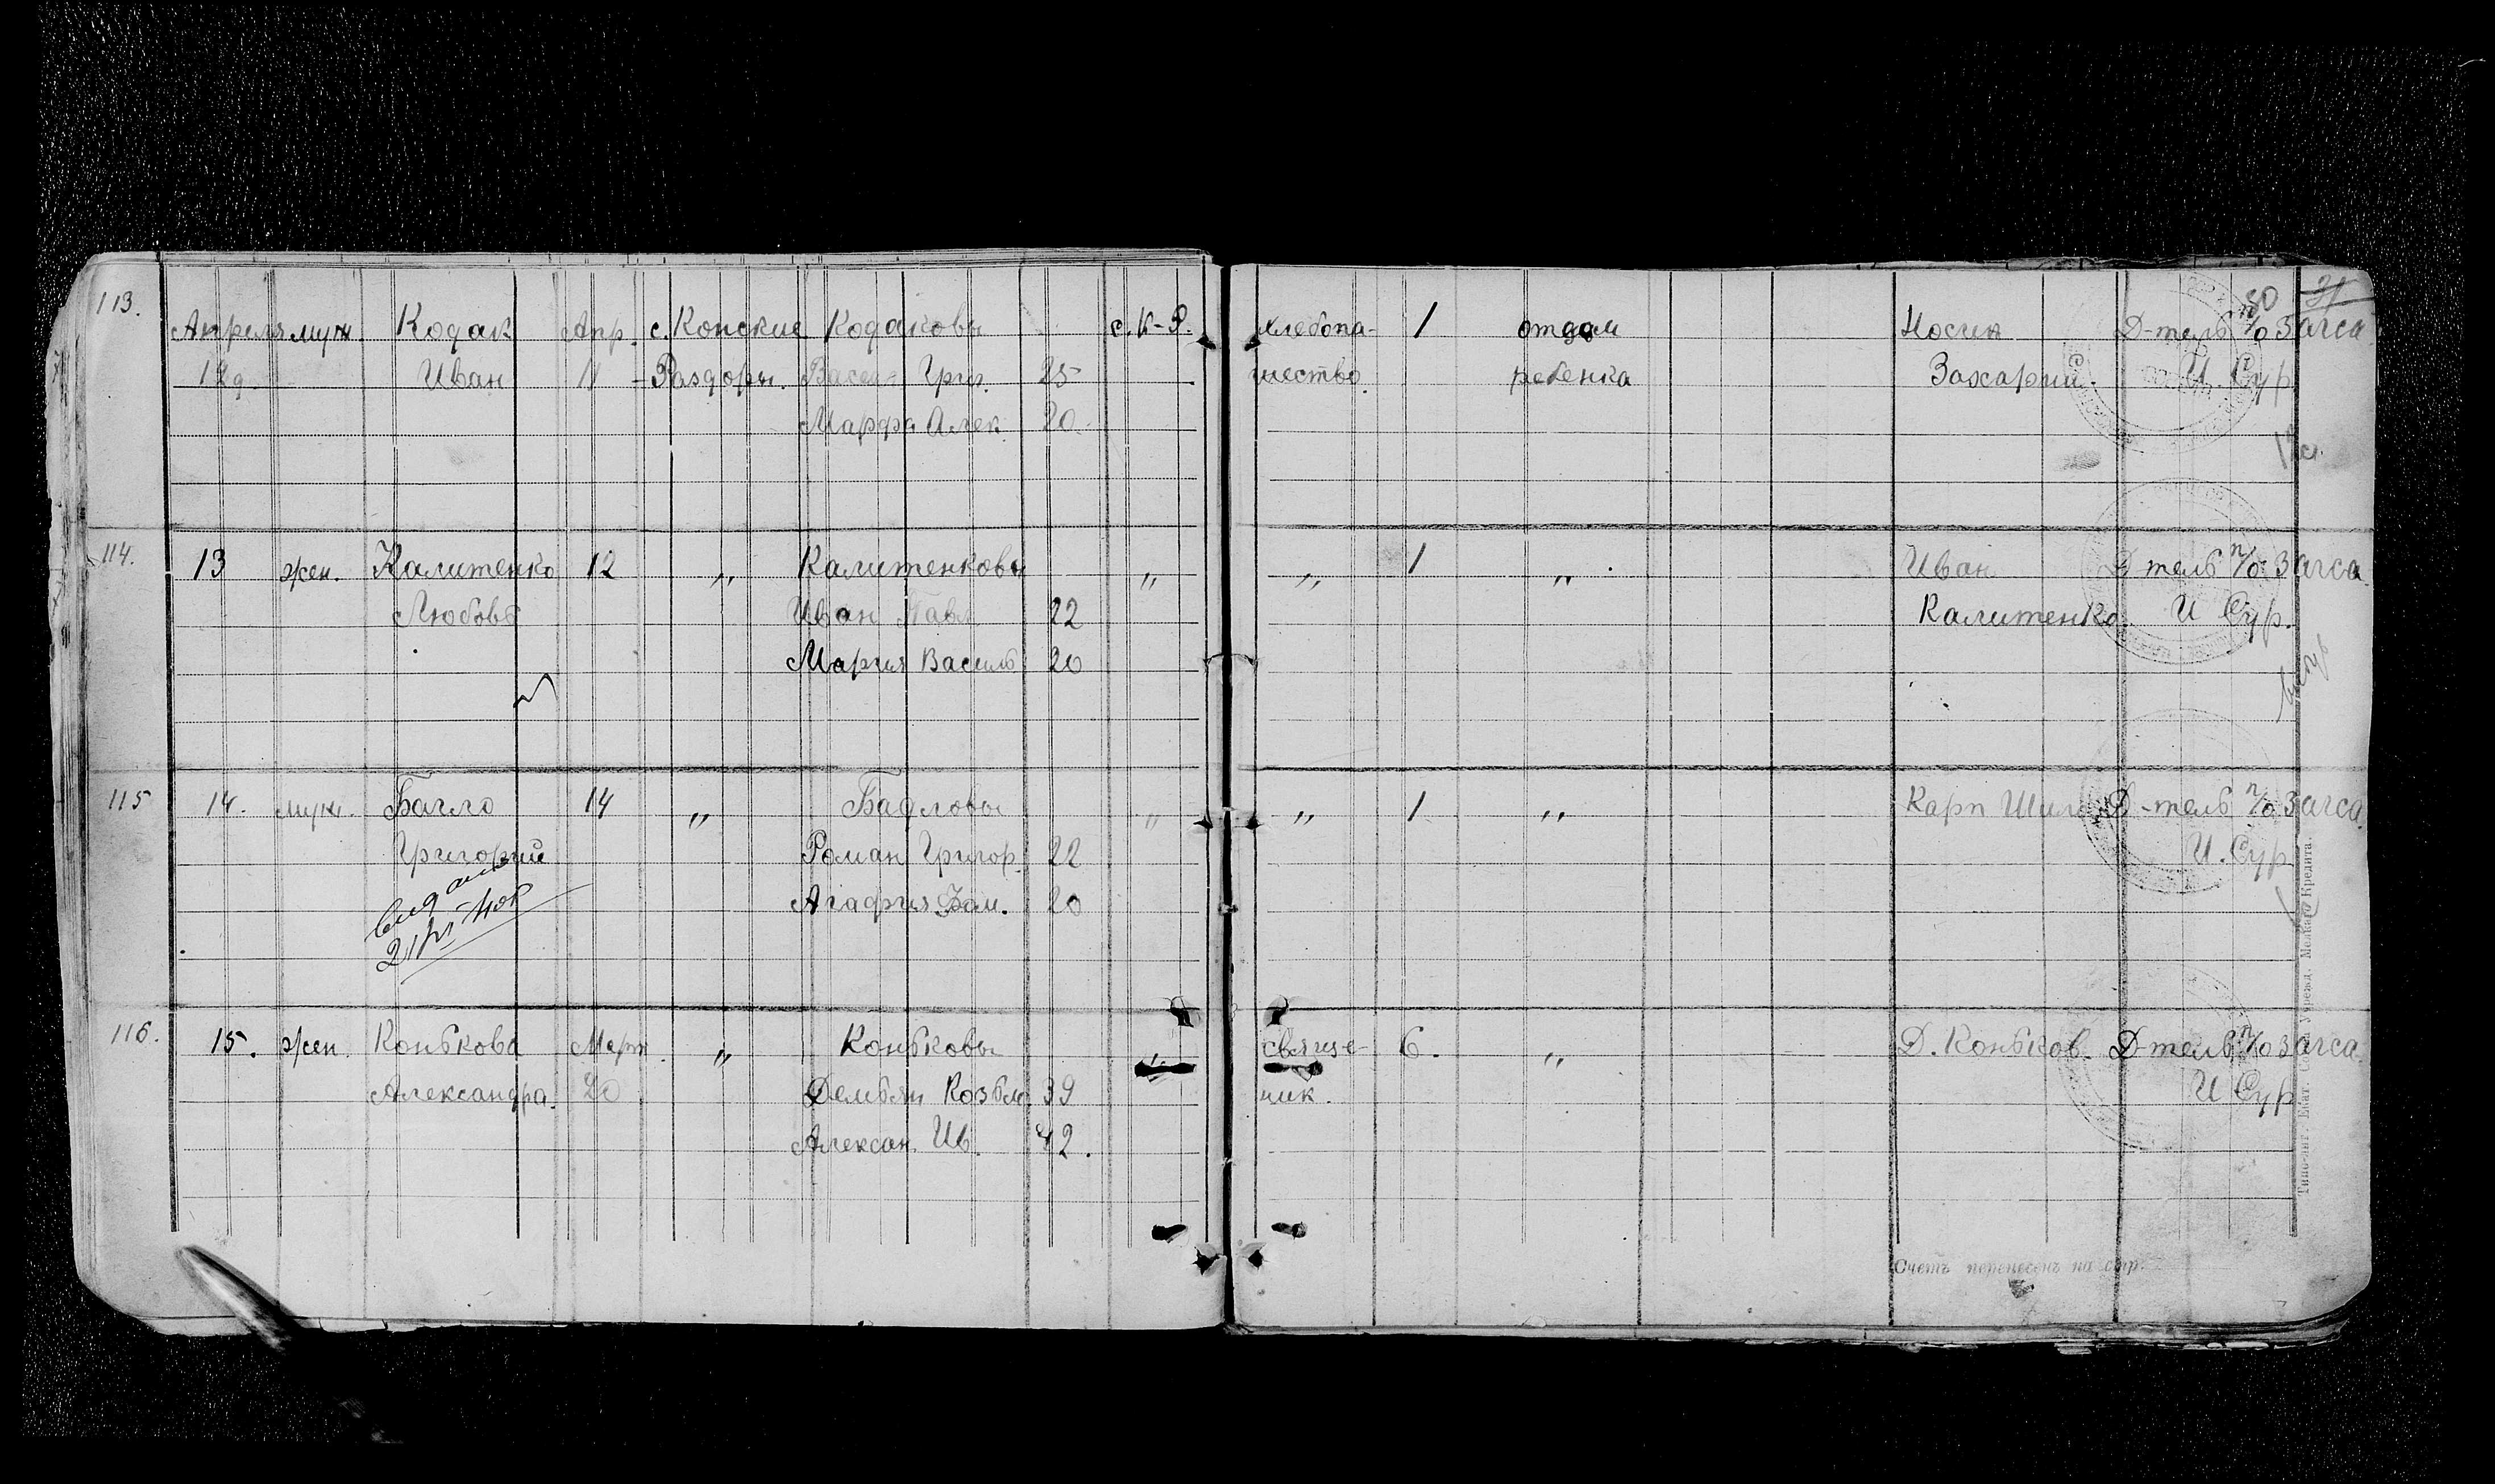 80 31
113. Апреля муж. Кодак Апр. с. Конские Кодаковы с. К-Р. хлебопа- 1 отдали Носик Д-тель п/о Загса
12 д. Иван 11 - Раздоры. Васил- Григ. 25 шество. ребенка Захарий. И. Сур
Марфа Алек. 20.
114. 13 жен. Калитенко 12 „ Калитенковы „ „ 1 „ Иван Д-тель п/о Загса
Любовь Иван Павл. 22 Калитенко. И Сур.
Мария Василь 20
115 14. муж. Багло 14 „ Бадловы „ „ 1 „ Карп Д-тель п/о Загса
Григорий Роман Григор. 22 И. Сур
Агафия 20
116. 15. жен. Конькова Март. „ Коньковы „ священ- 6. „ Д. Коньков. Д-тель п/о Загса
Александра. 20 Демьян Козьм. 39 ник. И Сур
Алексан. Ив. 42.
Счетъ перенесенъ на стр.
Типо-лит. Екат. Мелкаго Кредита.